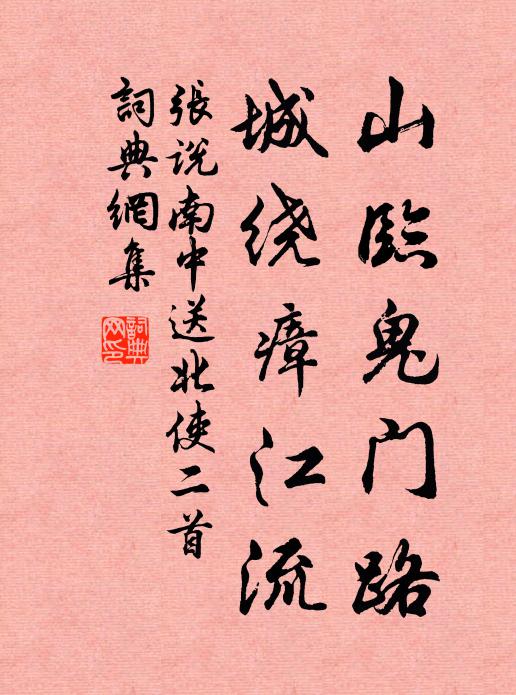 山臨鬼门路
城绕瘴江流
張说南中送北使二首
詞典網集
詞典网印